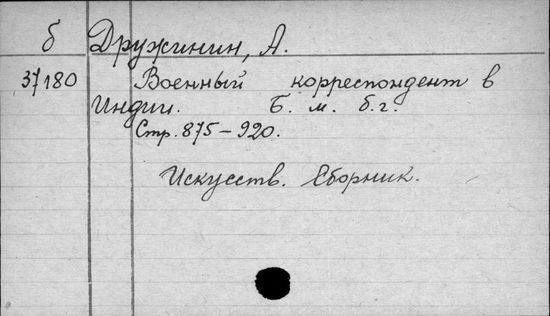 б Дружинин, А.
37180 Военный корреспондент в
Индии. Б. м. б. г.
Стр. 875–920.
Искусств. Сборник.